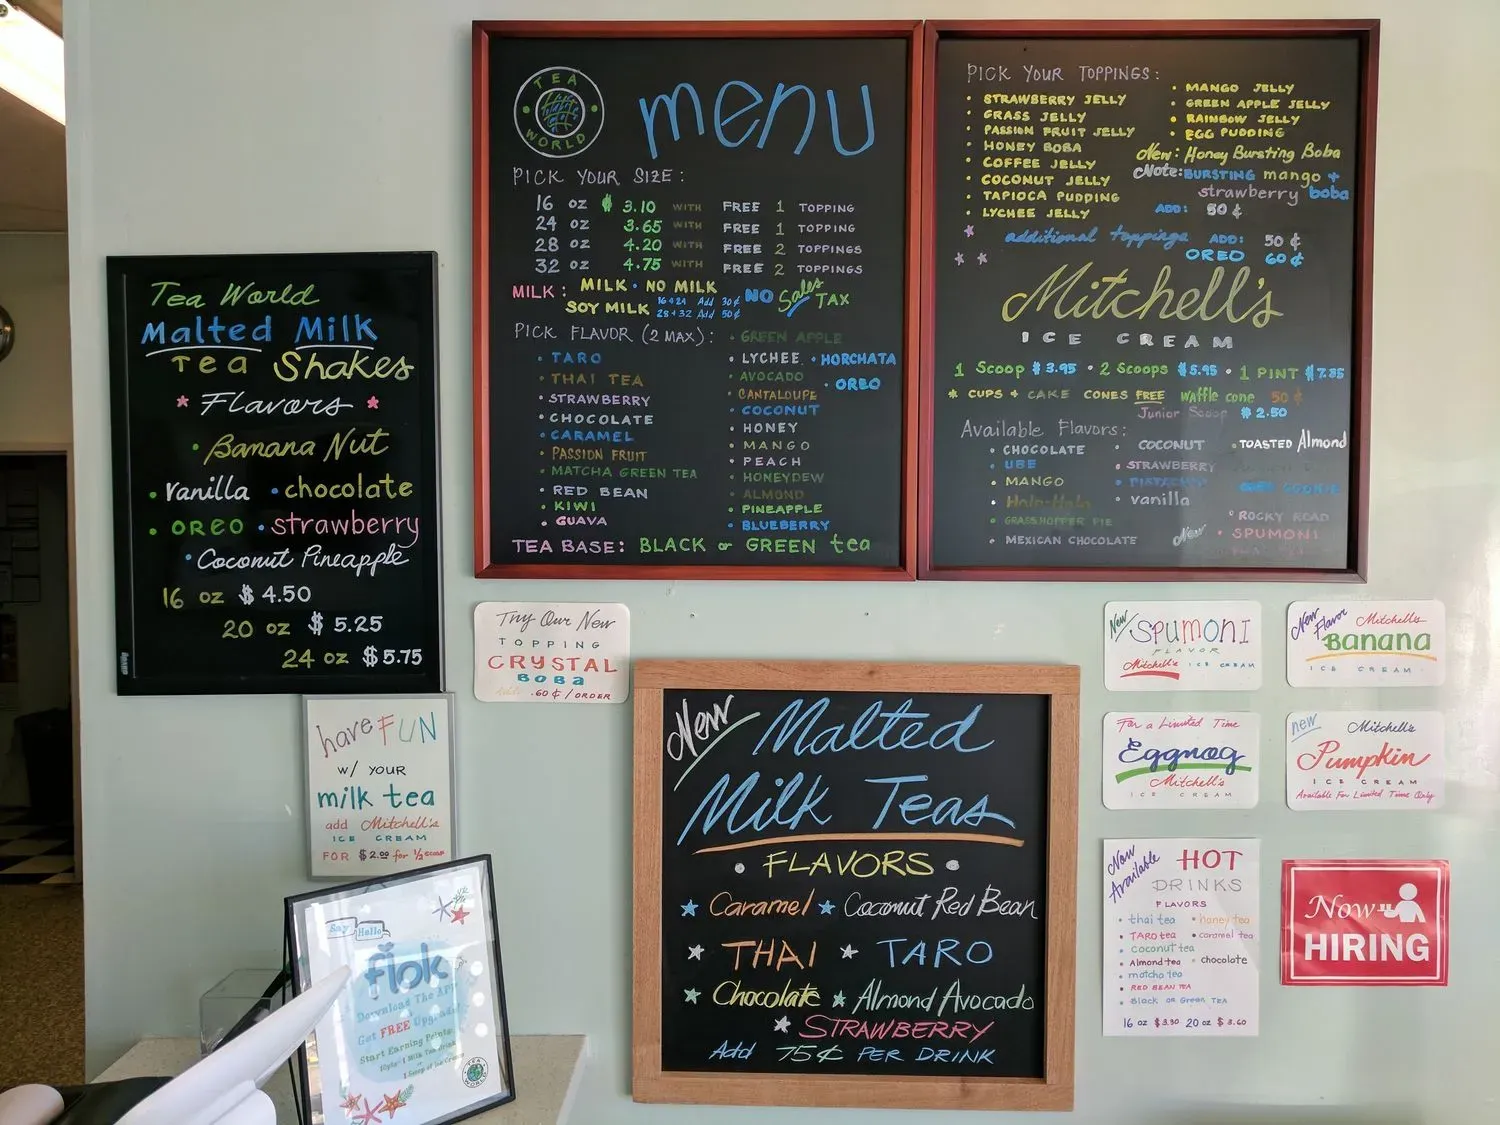 Tea World
Malted Milk
Tea Shakes
* Flavors *
• Banana Nut
• vanilla • chocolate
• OREO • strawberry
• Coconut Pineapple
16 oz $ 4.50
20 oz $ 5.25
24 oz $ 5.75
TEA
WORLD
menu
PICK YOUR SIZE:
16 oz $ 3.10 WITH FREE 1 TOPPING
24 oz 3.65 WITH FREE 1 TOPPING
28 oz 4.20 WITH FREE 2 TOPPINGS
32 oz 4.75 WITH FREE 2 TOPPINGS
MILK: MILK • NO MILK
SOY MILK 16+24 Add 30¢
28+32 Add 50¢
NO Sales TAX
PICK FLAVOR (2 MAX):
• TARO
• THAI TEA
• STRAWBERRY
• CHOCOLATE
• CARAMEL
• PASSION FRUIT
• MATCHA GREEN TEA
• RED BEAN
• KIWI
• GUAVA
• GREEN APPLE
• LYCHEE • HORCHATA
• AVOCADO • OREO
• CANTALOUPE
• COCONUT
• HONEY
• MANGO
• PEACH
• HONEYDEW
• ALMOND
• PINEAPPLE
• BLUEBERRY
TEA BASE: BLACK or GREEN tea
PICK YOUR TOPPINGS:
• STRAWBERRY JELLY
• GRASS JELLY
• PASSION FRUIT JELLY
• HONEY BOBA
• COFFEE JELLY
• COCONUT JELLY
• TAPIOCA PUDDING
• LYCHEE JELLY
• MANGO JELLY
• GREEN APPLE JELLY
• RAINBOW JELLY
• EGG PUDDING
New: Honey Bursting Boba
Note: BURSTING mango +
strawberry boba
ADD: 50¢
additional toppings ADD: 50¢
OREO 60¢
Mitchell's
ICE CREAM
1 Scoop $3.95 • 2 Scoops $5.95 • 1 PINT $7.85
* CUPS + CAKE CONES FREE Waffle cone 50¢
Junior Scoop $2.50
Available Flavors:
• CHOCOLATE
• UBE
• MANGO
• Halo-Halo
• GRASSHOPPER PIE
• MEXICAN CHOCOLATE
• COCONUT
• STRAWBERRY
• PISTACHIO
• vanilla
• TOASTED Almond
COOKIE
• ROCKY ROAD
New • SPUMONI
Try Our New
TOPPING
CRYSTAL
BOBA
.60¢ / ORDER
New SPUMONI
FLAVOR
Mitchell's ICE CREAM
New Flavor Mitchell's
BANANA
ICE CREAM
For a Limited Time
Eggnog
Mitchell's
ICE CREAM
new Mitchell's
Pumpkin
ICE CREAM
Available For Limited Time Only
have FUN
w/ YOUR
milk tea
add Mitchell's
ICE CREAM
FOR $2.00 for 1/2 scoop
New Malted
Milk Teas
• FLAVORS •
★ Caramel ★ Coconut Red Bean
★ THAI ★ TARO
★ Chocolate ★ Almond Avocado
★ STRAWBERRY
Add 75¢ PER DRINK
Now Available HOT
DRINKS
FLAVORS
• thai tea • honey tea
• TARO tea • caramel tea
• coconut tea
• Almond tea • chocolate
• matcha tea
• RED BEAN TEA
• Black or Green TEA
16 oz $3.30 20 oz $3.60
Now
HIRING
Say Hello
fiok
Download The App
Get FREE Upgrades
Start Earning Points
1 Milk Tea drink
1 Scoop of Ice Cream
TEA
WORLD